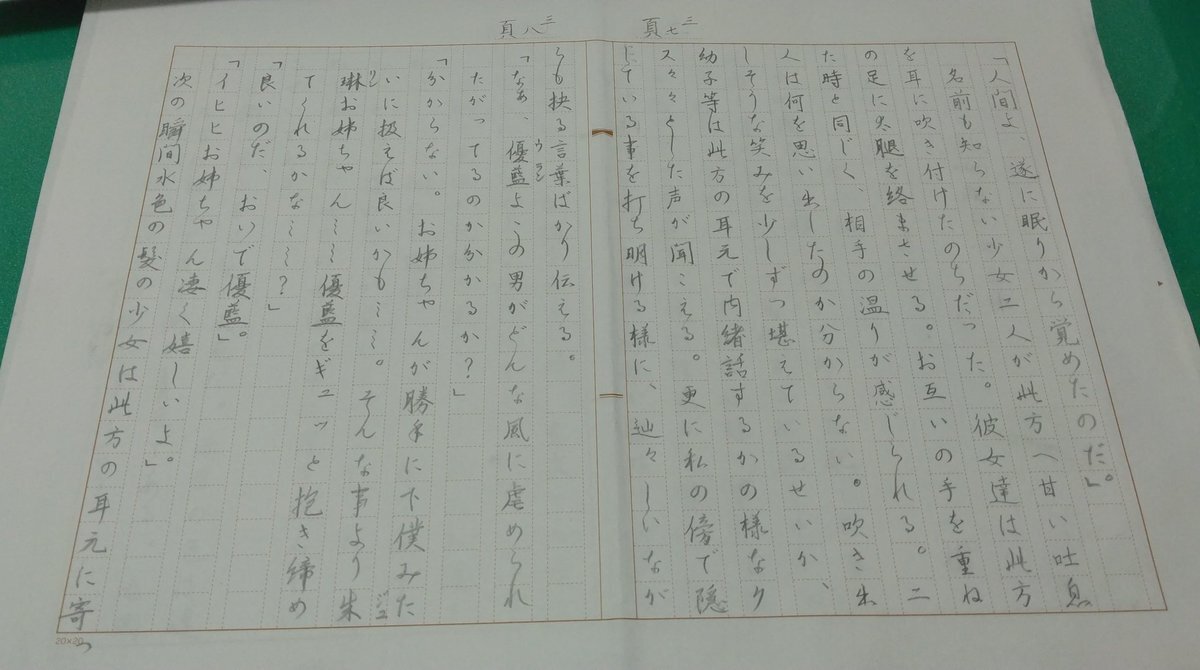 三七頁
「人間よ、遂に眠りから覚めたのだ」。
名前も知らない少女二人が此方へ甘い吐息
を耳に吹き付けたのちだった。彼女達は此方
の足に太腿を絡まさせる。お互いの手を重ね
た時と同じく 相手の温りが感じられる。二
人は何を思い出したのか分からない。吹き出
しそうな笑みを少しずつ堪えているせいか、
幼子等は此方の耳元で内緒話するかの様なク
スクスとした声が聞こえる。更に私の傍で隠
している事を打ち明ける様に、辿々しいなが
三八頁
らも抉る言葉ばかり伝える。
「なぁ、優藍よこの男がどんな風に虐められ
ウラン
たがってるのか分かるか?」
「分からない。お姉ちゃんが勝手に下僕みた
いに扱えば良いかも……。そんな事より朱
ジュ
琳お姉ちゃん……優藍をギュッと抱き締め
リン
てくれるかな……?」
「良いのだ、おいで優藍。
「イヒヒお姉ちゃん凄く嬉しいよ。」
次の瞬間水色の髪の少女は此方の耳元に寄
っ
20×20